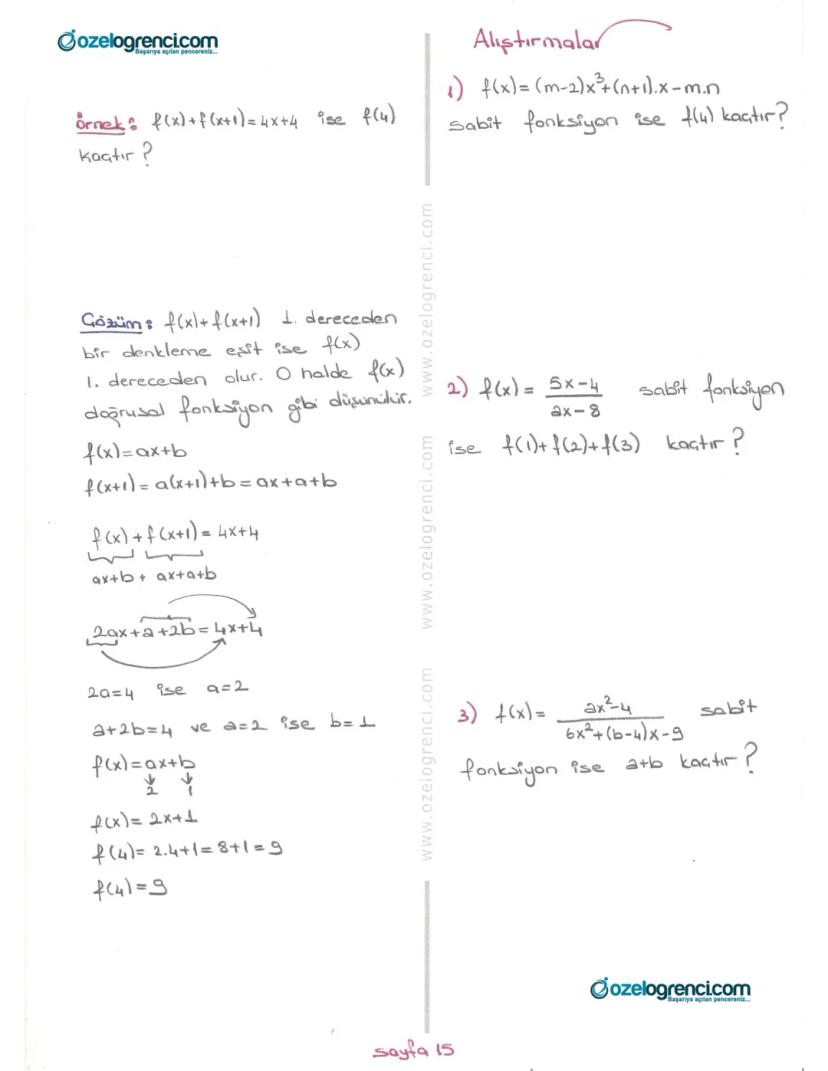 ozelogrenci.com
Başarıya açılan pencereniz...
Örnek: f(x)+f(x+1)=4x+4 ise f(4)
kaçtır?
Çözüm: f(x)+f(x+1) 1. dereceden
bir denkleme eşit ise f(x)
1. dereceden olur. O halde f(x)
doğrusal fonksiyon gibi düşünülür.
f(x)=ax+b
f(x+1)=a(x+1)+b=ax+a+b
f(x)+f(x+1)=4x+4
ax+b+ ax+a+b
2ax+a+2b=4x+4
2a=4 ise a=2
a+2b=4 ve a=2 ise b=1
f(x)=ax+b
2 1
f(x)=2x+1
f(4)=2.4+1=8+1=9
f(4)=9
www.ozelogrenci.com www.ozelogrenci.com www.ozelogrenci.com
Alıştırmalar
1) f(x)=(m-2)x³+(n+1).x-m.n
sabit fonksiyon ise f(4) kaçtır?
2) f(x)= 5x-4 sabit fonksiyon
ax-8
ise f(1)+f(2)+f(3) kaçtır?
3) f(x)= ax²-4 sabit
6x²+(b-4)x-9
fonksiyon ise a+b kaçtır?
ozelogrenci.com
Başarıya açılan pencereniz...
sayfa 15